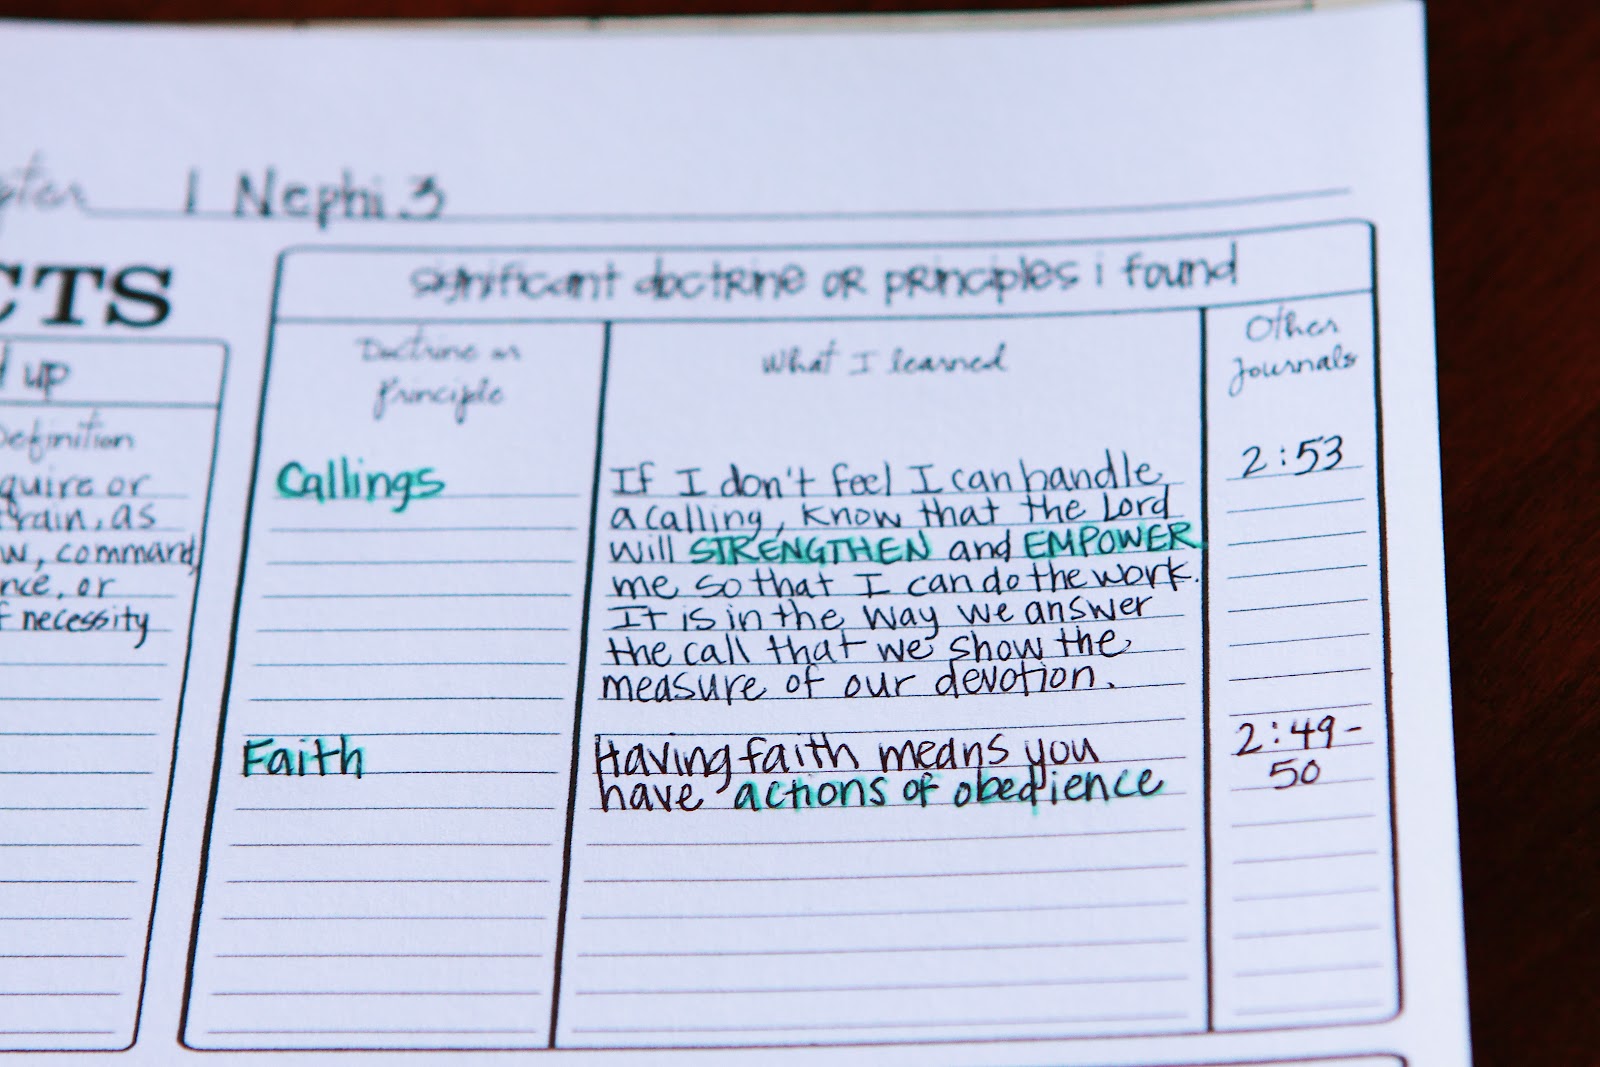 1 Nephi 3
CTS
significant doctrine or principles i found
up
Doctrine or
Principle
What I learned
Other
Journals
Definition
quire or
rain, as
w, command,
nce, or
f necessity
Callings
If I don't feel I can handle
a calling, know that the Lord
will STRENGTHEN and EMPOWER
me so that I can do the work.
It is in the way we answer
the call that we show the
measure of our devotion.
2:53
Faith
Having faith means you
have actions of obedience
2:49-
50